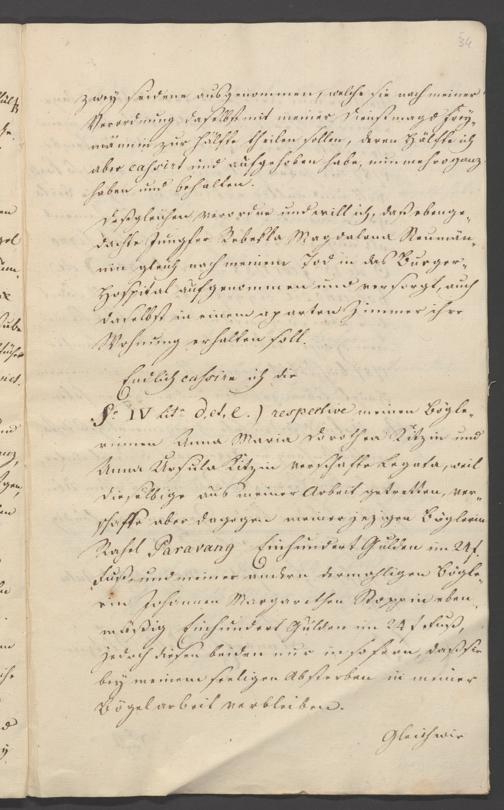 34
zwey seidene ausgenommen, welche sie nach meiner
Verordnung daselbst mit meiner Dienstmagd Frey-
männin zur Hälfte theilen sollen, deren Hälfte ich
aber cassirt und aufgehoben habe, nunmehro ganz
haben und behalten.
Desgleichen verordne und will ich, daß ebenge-
dachte Jungfer Rebekka Magdalena Neumän-
nin gleich nach meinem Tod in das Burger-
Hospital aufgenommen und versorgt, auch
daselbst in einem aparten Zimmer ihre
Wohnung erhalten soll.
Endlich cassire ich die
§o IV litr d, et, e.) respective meinen Bögle-
rinnen Anna Maria Dorothea Kitzin und
Anna Ursula Kitzin verschafte Legata, weil
dieselbige aus meiner Arbeit getretten, ver-
schaffe aber dagegen meiner jezigen Böglerin
Rahel Paravang Einhundert Gulden im 24 f.
Fuß, und meiner andern dermahligen Bögle-
rin Johannen Margarethen Stoppin eben-
mäßig Einhundert Gulden im 24 f Fuß,
jedoch diesen beiden nur in sofern, daß sie
bey meinem seeligen Absterben in meiner
Bögelarbeit verbleiben.
Gleichwie